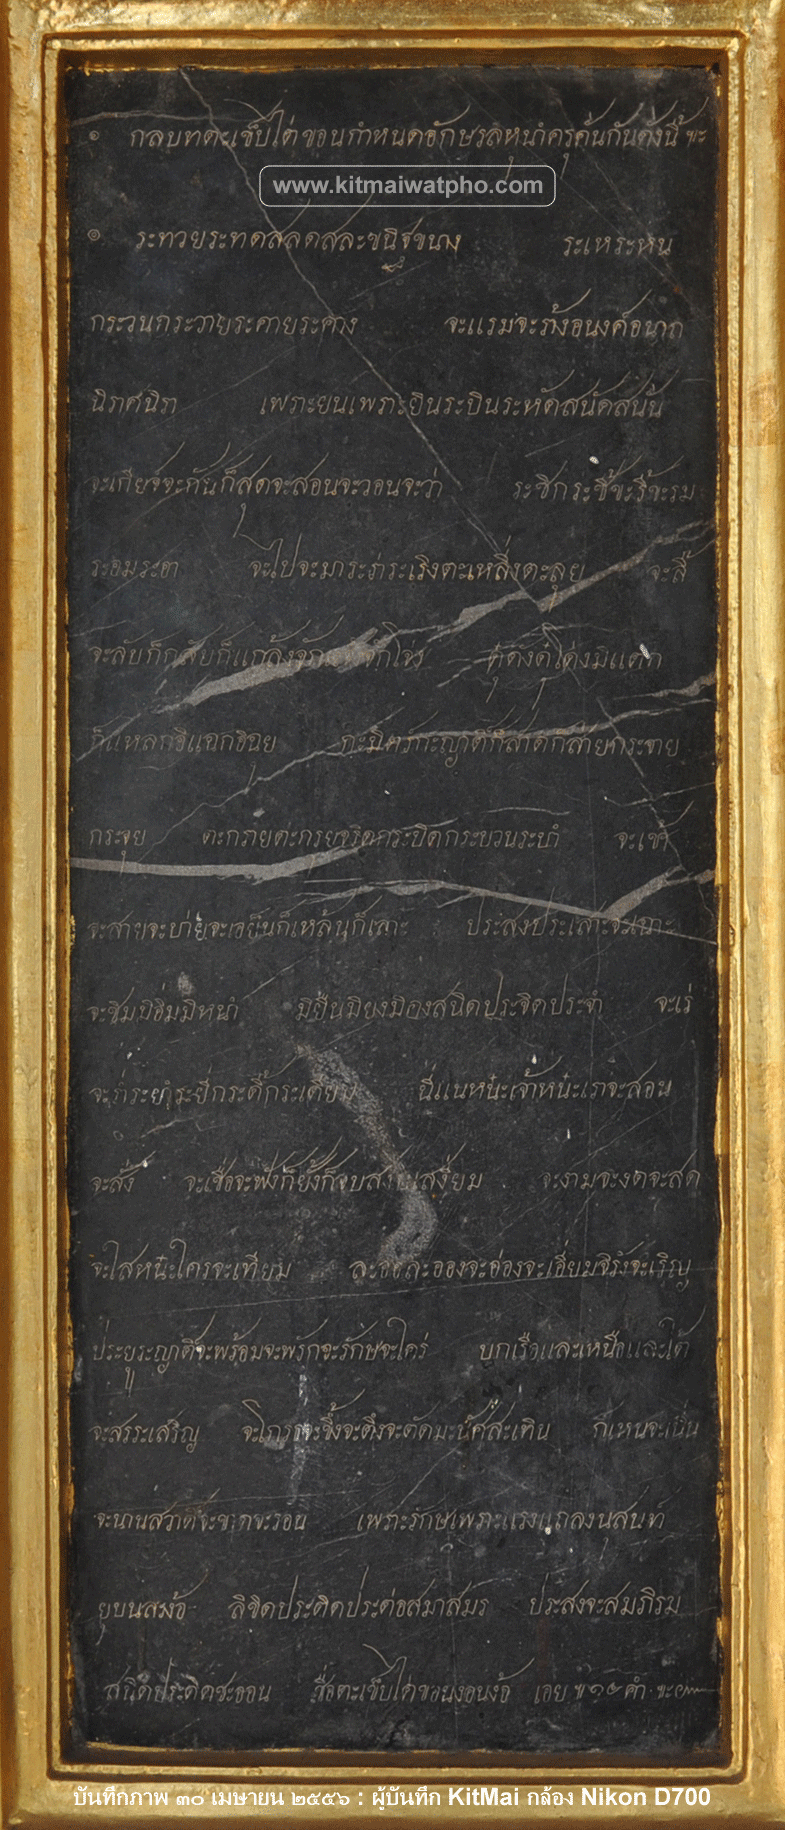 ๏ กลบทตะเข็บไต่ขอนกำหนดอักษรลหุนำครุคั่นกันดังนี้ ฯะ
www.kitmaiwatpho.com
๏ ระทวยระทดสลดสละขนิฐขนาง ระเหระหน
กระวนกระวายระคายระคาง จะแรมจะร้างอนงค์อนาถ
นิราศนิรา เพราะยนเพราะยินระบินระหัดสนัดสนั่น
จะเกียจ์จะกันก็สุดจะสอนจะวอนจะว่า ระซิกระซี้จะริ้จะรม
ระอมระอา จะไปจะมาระร่าระเริงตะเหลิ่งตะลุย จะลี้
จะลับก็กลับก็แกล้ง
ก็แหลกอิแฉกอิฉุย กะมิตรกะญาติก็สาดก็สายกระจาย
กระจุย ตะกรายตะกรุยจริตกระบิดกระบวนระบำ จะเช้า
จะสายจะบ่ายจะเอย็นก็เหล้นก็ ประสงประเสาะจะเฉาะ
จะชิมมิอิ่มมิหนำ มิยืนมิยงมิองสนิดประจิดประจำ จะเร่
จะร่ำระยำระยี่กระดี้กระเดียม นี่แนหน๋ะเจ้าหน๋ะเราจะสอน
จะสั่ง จะเชื่อจะฟังก็ยั้งก็จบสงบเสงี่ยม จะงามจะงดจะสด
จะใสหน๋ะใครจะเทียม ละอองจะอ่องจะเอี่ยมจิรังจะเริรญ
ประยูระญาติจะพร้อมจะพรักจะรักษจะใคร่ บกเรือแลเหนือแลใต้
จะสรรเสริญ จะโกรธจะขึ้งจะดึงจะตัดมะนัศสะเทิน ก็เหนจะเนิ่น
จะนานสวาดิจะขาดจะรอน เพราะรักษเพราะแรงแถลงนุสนท์
ยุบนสมร ลิขิดประดิดประต่อสมาสมร ประสงจะสมภิรม
สนิดประดิดชะออน ชื่อตะเข็บไต่ขอนงอนง้อ เอย ฯ ๑๔ คำ ฯะ
บันทึกภาพ ๓๐ เมษายน ๒๕๕๖ : ผู้บันทึก KitMai กล้อง Nikon D700